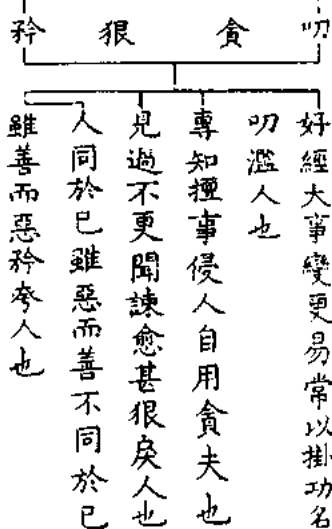 叨 貪 狠 矜
好經大事變更易常以掛功名
叨濫人也
專知擅事侵人自用貪夫也
見過不更聞諫愈甚狠戾人也
人同於己雖惡而善不同於己
雖善而惡矜夸人也